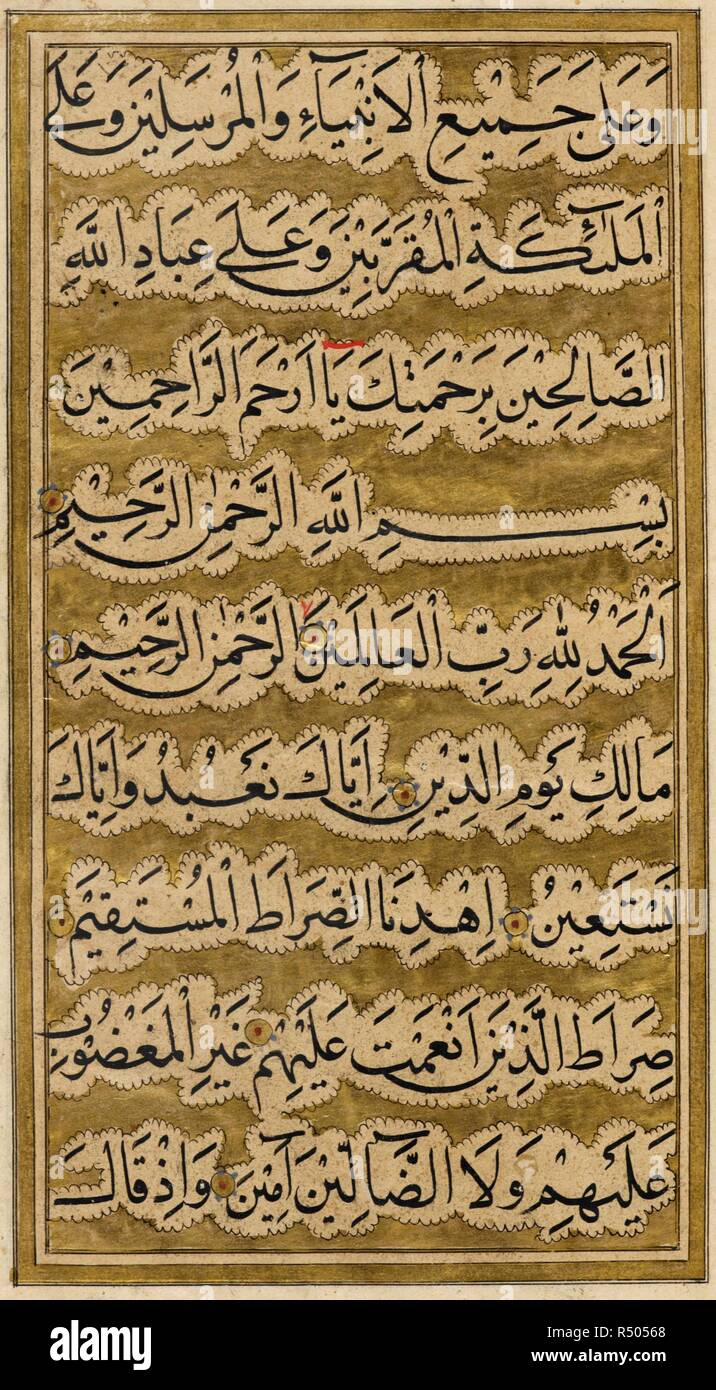 وَعَلَى جَمِيعِ الْاَنْبِيَآءِ وَالْمُرْسَلِيْنَ وَعَلَى
الْمَلٰٓئِكَةِ الْمُقَرَّبِيْنَ وَعَلَى عِبَادِ اللّٰهِ
الصَّالِحِيْنَ بِرَحْمَتِكَ يَا اَرْحَمَ الرَّاحِمِيْنَ
بِسْمِ اللّٰهِ الرَّحْمٰنِ الرَّحِيْمِ
اَلْحَمْدُ لِلّٰهِ رَبِّ الْعَالَمِيْنَ الرَّحْمٰنِ الرَّحِيْمِ
مَالِكِ يَوْمِ الدِّيْنِ اِيَّاكَ نَعْبُدُ وَاِيَّاكَ
نَسْتَعِيْنُ اِهْدِنَا الصِّرَاطَ الْمُسْتَقِيْمَ
صِرَاطَ الَّذِيْنَ اَنْعَمْتَ عَلَيْهِمْ غَيْرِ الْمَغْضُوْبِ
عَلَيْهِمْ وَلَا الضَّآلِّيْنَ آمِيْنَ وَاِذْ قَالَ
alamy
Image ID: R50568
www.alamy.com